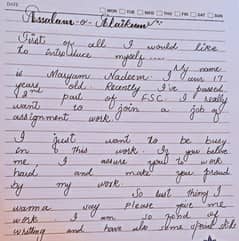 DATE
MON TUE WED THU FRI SAT SUN
Assalam-o-Alaikum
First of all I would like
to introduce myself....
My name
is Maryam Nadeem. I am 17
years old. Recently I've passed
2nd part of FSC. I really
want to join a job of
assignment work.
I just want to be busy
in this work. If you believe
me, I assure you to work
hard and make you proud
by my work.
So last thing I
wanna say Please give me
work. I am so fond of
writing and have also some